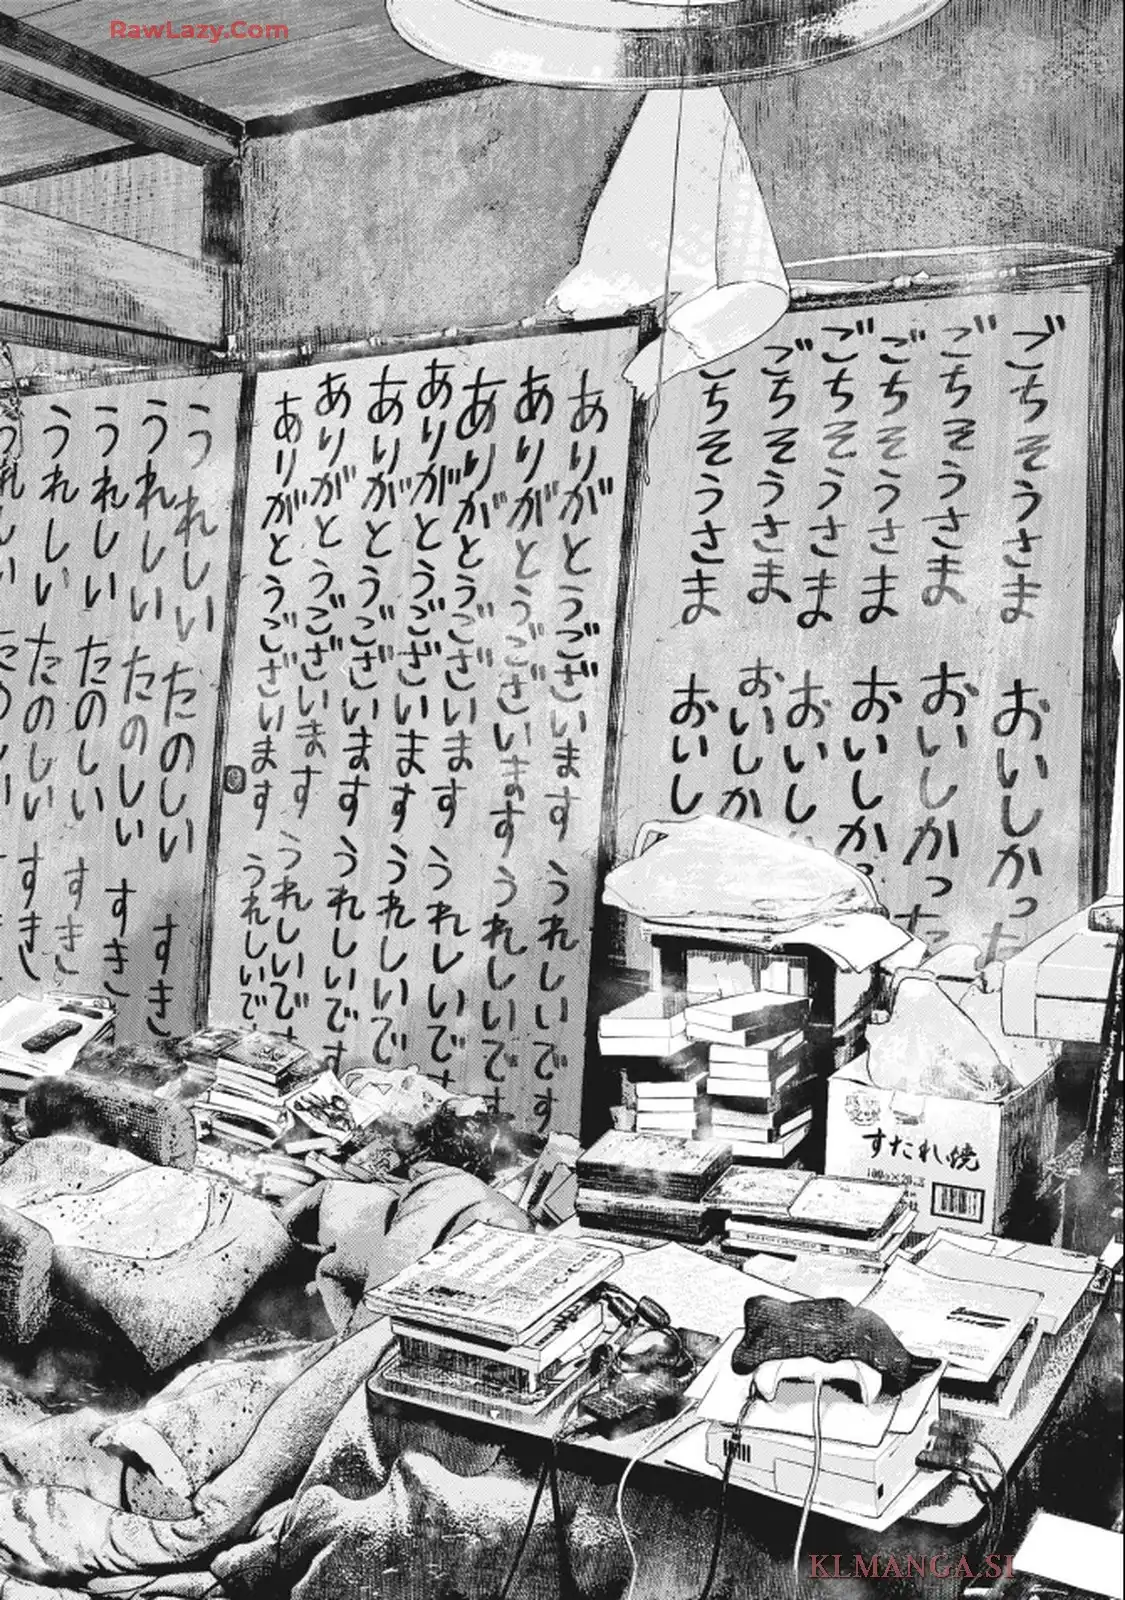 RawLazy.Com
ごちそうさま おいしかった
ごちそうさま おいしかった
ごちそうさま おいしかっ
ごちそうさま おいし
ごちそうさま おいしか
ごちそうさま おいし
ありがとうございます うれしいです
ありがとうございます うれしいです
ありがとうございます うれしいです
ありがとうございます うれしいで
ありがとうございます うれしいです
ありがとうございます うれしいです
ありがとうございます うれしいで
うれしい たのしい すき
うれしい たのしい すき
うれしい たのしい
うれしい たのしい すき
うれしい たのしい すき
すだれ焼
KLMANGA.SI